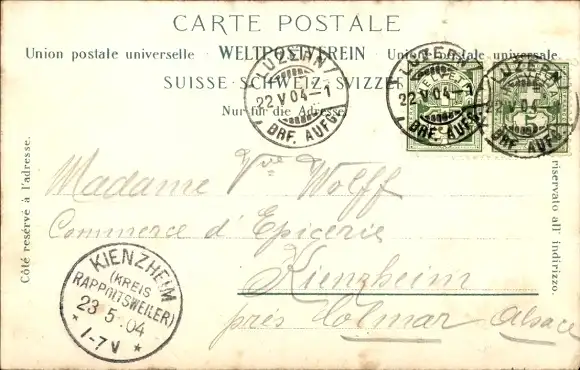 CARTE POSTALE
Union postale universelle · WELTPOSTVEREIN · Unione postale universale.
SUISSE · SCHWEIZ · SVIZZERA
Nur für die Adresse
LUZERN
22 V 04-1
BRF. AUFG.
LUZERN
22 V 04-1
BRF. AUFG.
LUZERN
22 V 04
BRF. AUFG.
Côté réservé à l'adresse.
riservato all' indirizzo.
Madame Vve Wolff
Commerce d'Epicerie
Kienzheim
près Colmar Alsace
KIENZHEIM
(KREIS
RAPPOLTSWEILER)
23 5 04
* 1-7 V *